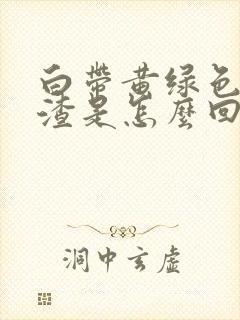 白带黄绿色
渣是怎麼回
洞中玄虚